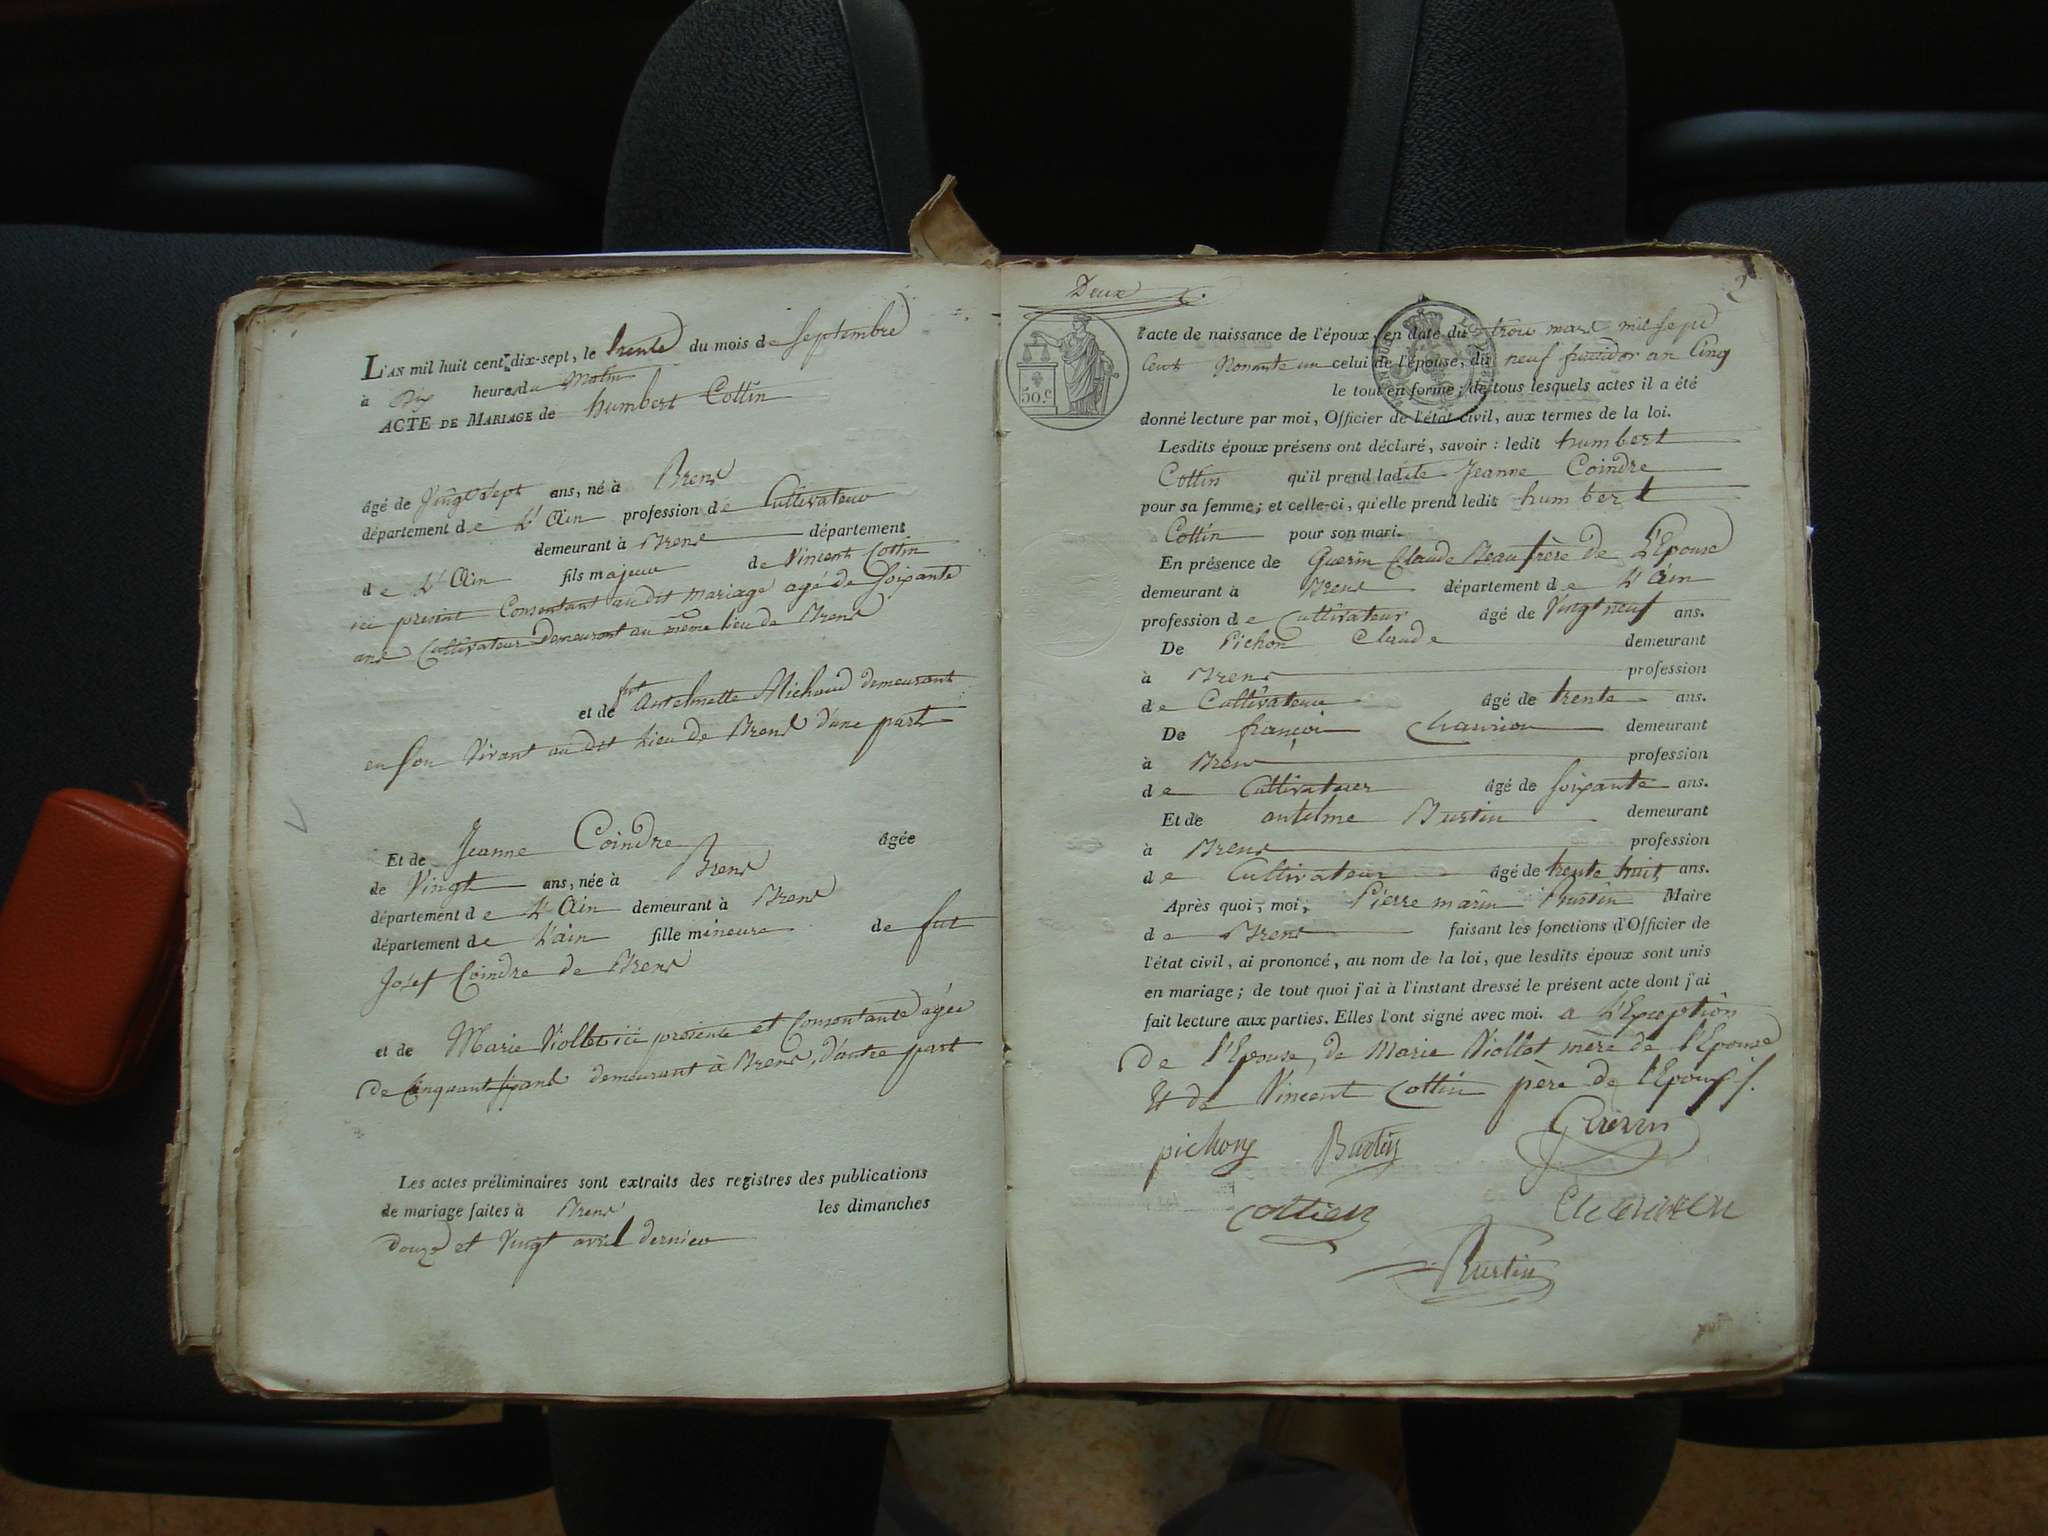 L'AN mil huit cent dix-sept, le trente du mois de Septembre
à Dix heures du Matin
ACTE DE MARIAGE de humbert Cottin
âgé de Vingt Sept ans, né à Brens
département de L'Ain profession de Cultivateur
demeurant à Brens département
de L'Ain fils majeur de Vincent Cottin
ici présent Consentant au dit mariage agé de Soixante
ans Cultivateur Demeurant au même lieu de Brens
et de fut Antelmette Michaud demeurant
en Son Vivant au dit Lieu de Brens d'une part
Et de Jeanne Coindre âgée
de Vingt ans, née à Brens
département de L'Ain demeurant à Brens
département de L'ain fille mineure de fut
Josef Coindre de Brens
et de Marie Viollet ici présente et Consentante agée
De Cinquant ans demeurant à Brens, d'autre part
Les actes préliminaires sont extraits des registres des publications
de mariage faites à Brens les dimanches
Douze et Vingt avril dernier
Deux
2
50.c
l'acte de naissance de l'époux, en date du trois mars mil sept
Cent Nonante un celui de l'épouse, du neuf fructidor an Cinq
le tout en forme; de tous lesquels actes il a été
donné lecture par moi, Officier de l'état civil, aux termes de la loi.
Lesdits époux présens ont déclaré, savoir: ledit humbert
Cottin qu'il prend ladite Jeanne Coindre
pour sa femme; et celle-ci, qu'elle prend ledit humbert
Cottin pour son mari.
En présence de Guerin Claude Beau frère de L'Epouse
demeurant à Brens département de L'Ain
profession de Cultivateur âgé de Vingt neuf ans.
De Pichon Claude demeurant
à Brens profession
de Cultivateur âgé de trente ans.
De françois demeurant
à Brens profession
de Cultivateur âgé de Soixante ans.
Et de antelme Burtin demeurant
à Brens profession
de Cultivateur âgé de trente huit ans.
Après quoi, moi, Pierre marin Burtin Maire
de Brens faisant les fonctions d'Officier de
l'état civil, ai prononcé, au nom de la loi, que lesdits époux sont unis
en mariage; de tout quoi j'ai à l'instant dressé le présent acte dont j'ai
fait lecture aux parties. Elles l'ont signé avec moi. a L'Exception
De l'Epouse, de Marie Viollat mère de l'Epouse
Et de Vincent Cottin père de l'Epoux
pichon Burtin Guerin
cottin
Burtin